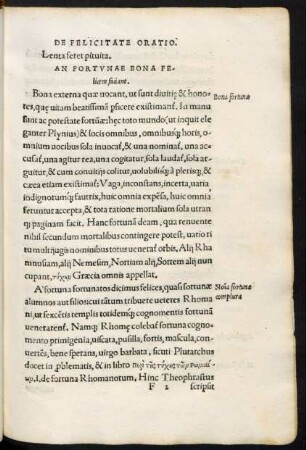 DE FELICITATE ORATIO.
Lenta feret pituita.
AN FORTVNAE BONA FE-
licem faciant.
Bona externa quæ uocant, ut sunt diuitiæ & hono-
res, quæ uitam beatissimã pficere existimant. In manu
sunt ac potestate fortũæ: hęc toto mundo (ut inquit ele
ganter Plynius) & locis omnibus, omnibusq; horis, o-
mnium uocibus sola inuocat, & una nominat, una ac
cusat, una agitur rea, una cogitatur, sola laudat, sola ar
guitur, & cum conuitijs colitur, uolubilisq; à plerisq; &
cæca etiam existimat: Vaga, inconstans, incerta, uaria
indignotumq; fautrix, huic omnia expẽsa, huic omnia
feruntur accepta, & tota ratione mortalium sola utran
q; paginam facit. Hanc fortunã deam, qua reuenante
nihil secundum mortalibus contingere potest, uario ti
tu multijugis nominibus totus uenerat orbis, Alij Rha
mnusiam, alij Nemesim, Nortiam alij, Sortem alij nun
cupant, τύχην Græcia omnis appellat.
A fortuna fortunatos dicimus felices, quasi fortunæ
alumnos aut filios, cui tãtum tribuete ueteres Rhoma
ni, ut sexcẽtis templis totidemq; cognomentis fortunã
uenetatent. Namq; Rhomę colebat fortuna cognome
nto primigenia, uiscata, pusilla, fortis, mascula, con
uertẽs, bene sperans, uirgo barbata, sicuti Plutarchus
docet in pblematis, & in libro περὶ τῆς τύχης τῶν
de fortuna Rhomanotum. Hinc Theophrastus
F 2 scripsit
Bona fortunæ
Noĩa fortunæ
complura